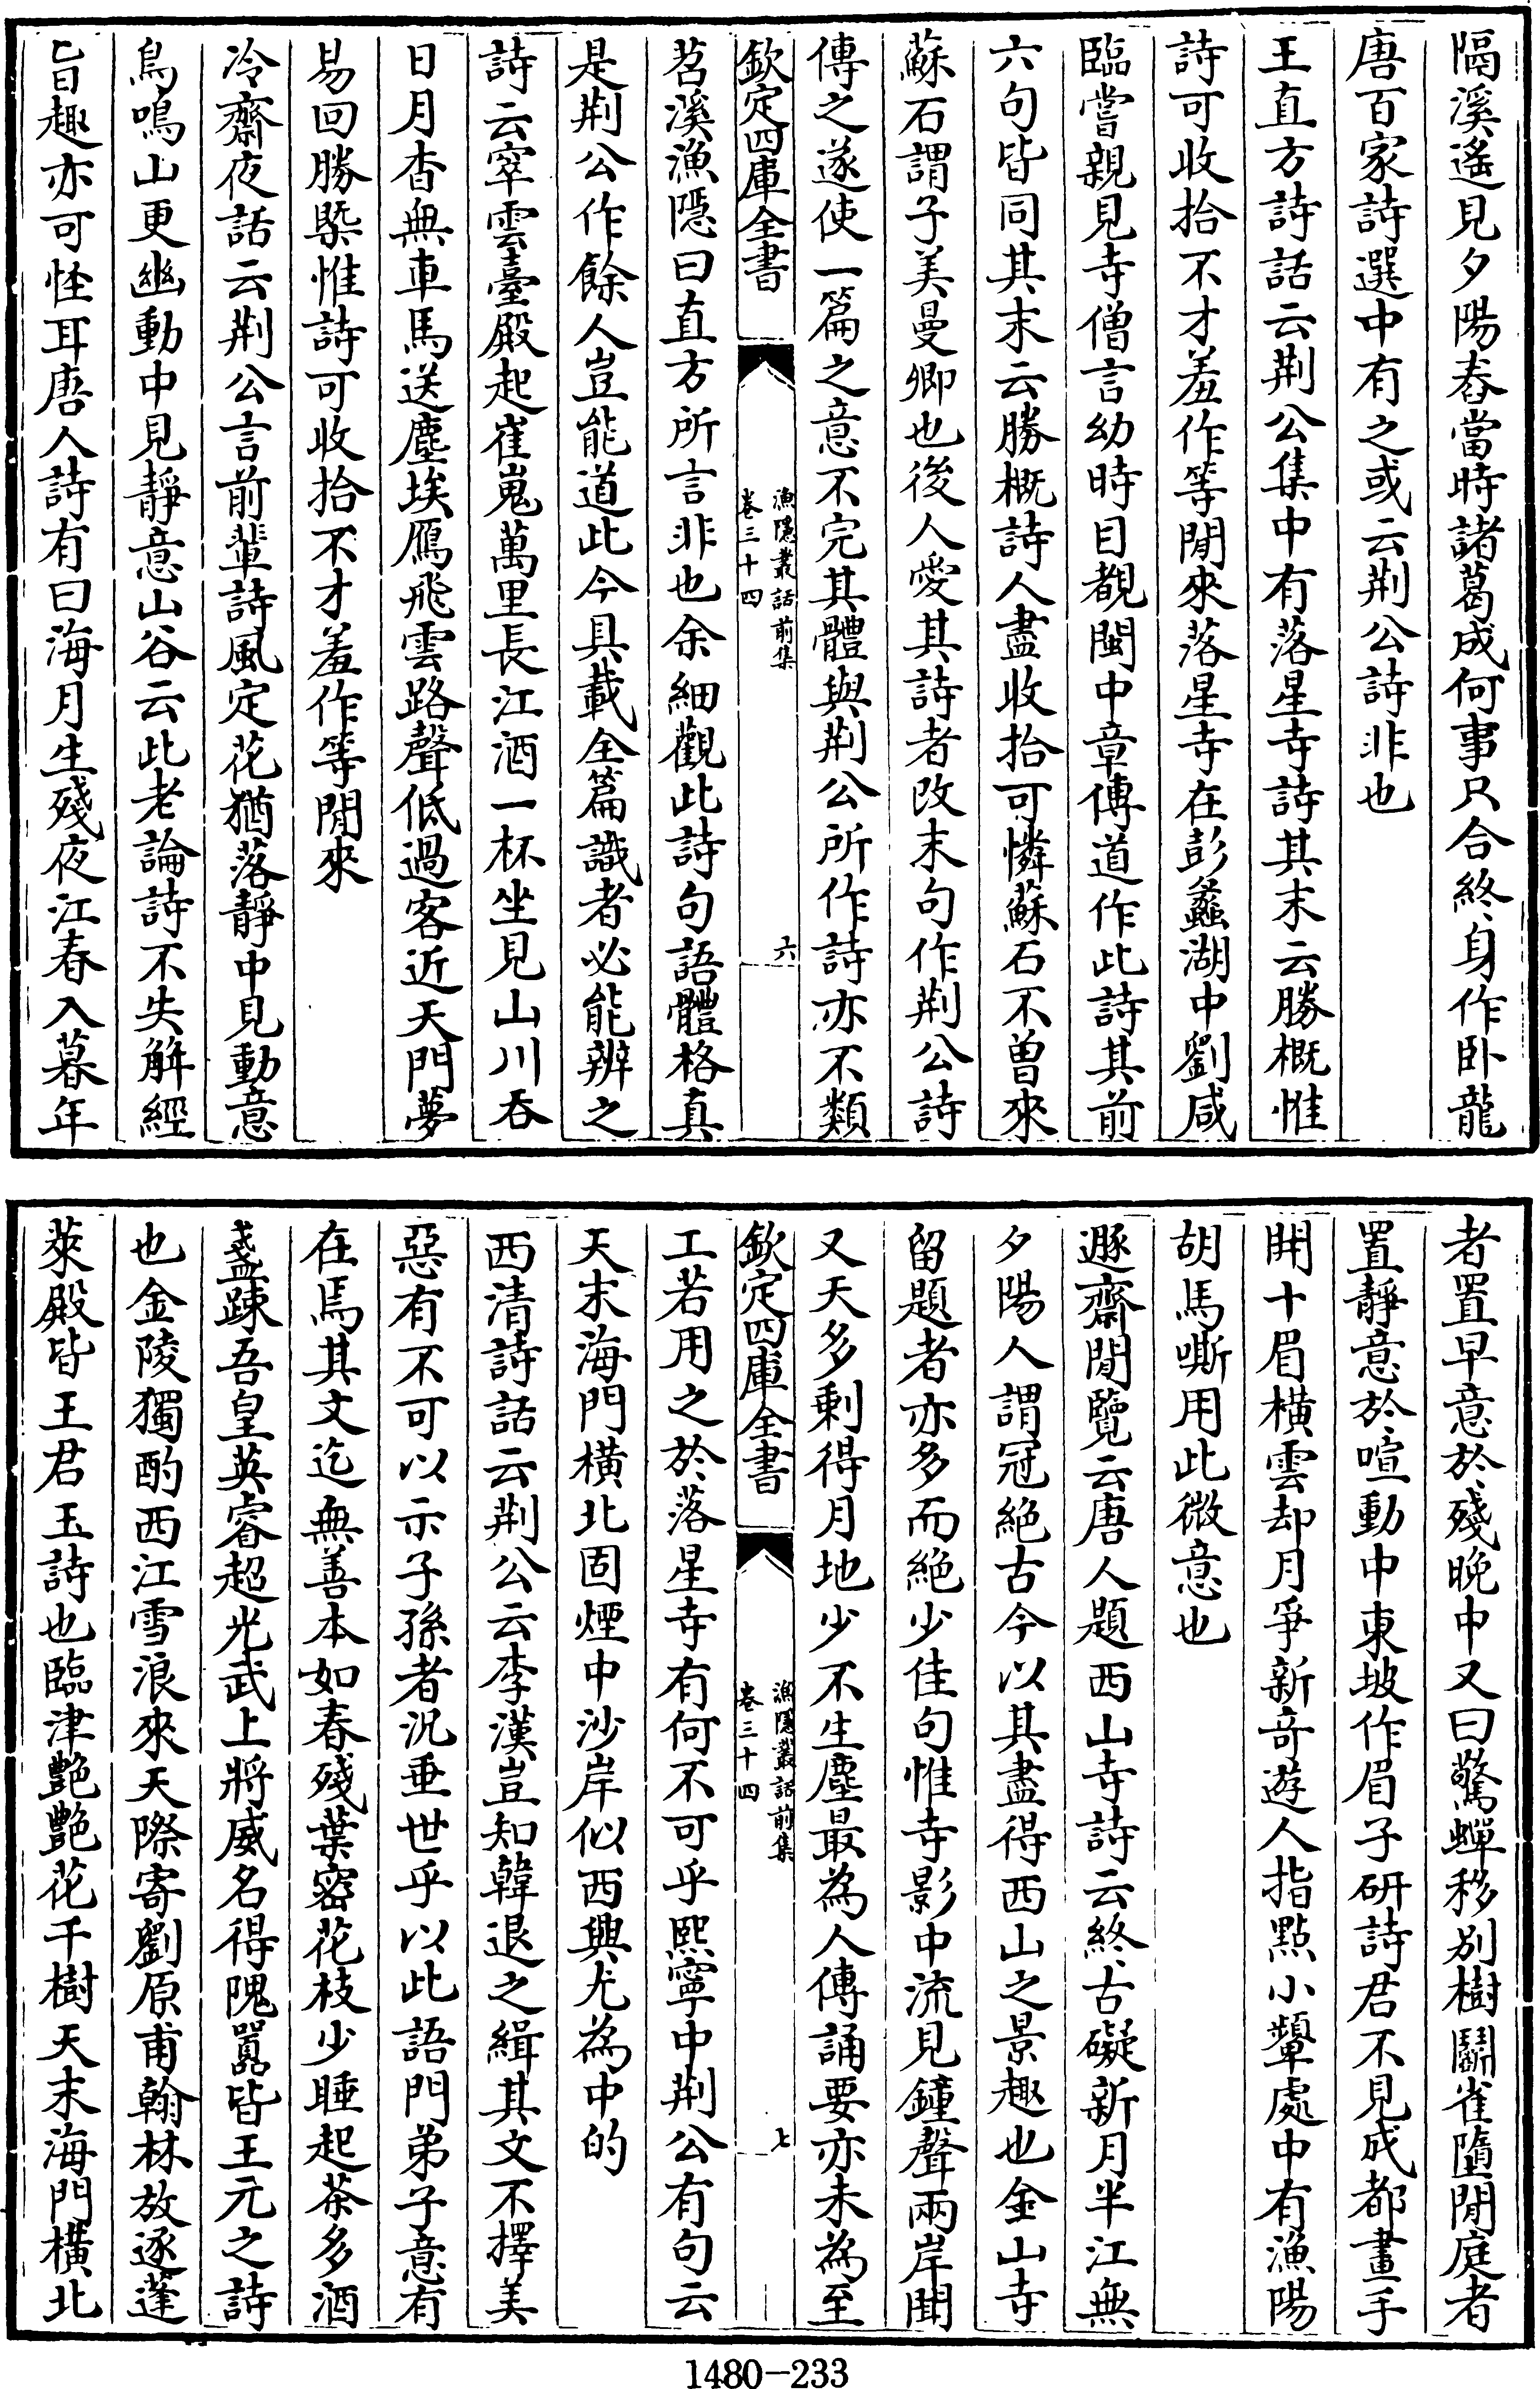 隔溪遙見夕陽舂當時諸葛成何事只合終身作卧龍
唐百家詩選中有之或云荆公詩非也
王直方詩話云荆公集中有落星寺詩其末云勝概惟
詩可收拾不才羞作等閒來落星寺在彭蠡湖中劉咸
臨嘗親見寺僧言幼時目覩閩中章傳道作此詩其前
六句皆同其末云勝概詩人盡收拾可憐蘇石不曽來
蘇石謂子美曼卿也後人愛其詩者改末句作荆公詩
傳之遂使一篇之意不完其體與荆公所作詩亦不類
欽定四庫全書
漁隱叢話前集
卷三十四
六
苕溪漁隱曰直方所言非也余細觀此詩句語體格真
是荆公作餘人豈能道此今具載全篇識者必能辨之
詩云窣雲臺殿起崔嵬萬里長江酒一杯坐見山川吞
日月杳無車馬送塵埃鴈飛雲路聲低過客近天門夢
易回勝槩惟詩可收拾不才羞作等閒來
冷齋夜話云荆公言前輩詩風定花猶落靜中見動意
鳥鳴山更幽動中見靜意山谷云此老論詩不失解經
旨趣亦可怪耳唐人詩有曰海月生殘夜江春入暮年
者置早意於殘晚中又曰驚蟬移别樹鬭雀墮閒庭者
置靜意於喧動中東坡作眉子研詩君不見成都畫手
開十眉橫雲却月爭新奇遊人指點小顰處中有漁陽
胡馬嘶用此微意也
遯齋閒覽云唐人題西山寺詩云終古礙新月半江無
夕陽人謂冠絶古今以其盡得西山之景趣也金山寺
留題者亦多而絶少佳句惟寺影中流見鐘聲兩岸聞
又天多剩得月地少不生塵最為人傳誦要亦未為至
欽定四庫全書
漁隱叢話前集
卷三十四
七
工若用之於落星寺有何不可乎熙寧中荆公有句云
天末海門橫北固煙中沙岸似西興尤為中的
西清詩話云荆公云李漢豈知韓退之緝其文不擇美
惡有不可以示子孫者況垂世乎以此語門弟子意有
在焉其文迄無善本如春殘葉密花枝少睡起茶多酒
盞踈吾皇英睿超光武上將威名得隗囂皆王元之詩
也金陵獨酌西江雪浪來天際寄劉原甫翰林放逐蓬
萊殿皆王君玉詩也臨津艷艷花千樹天末海門橫北
1480-233